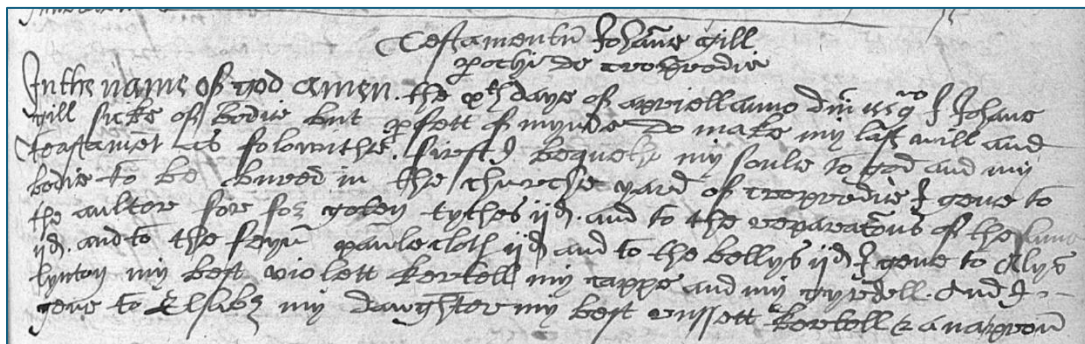 Testamentū Johane gill
pochie de cropredie
In the name of god amen. the xth daye of apriell anno dm̄ I Johane
gill sicke of bodie but pfett of mynde do make my last will and
Testamēt as folowithe. first I bequethe my soule to god and my
bodie to be bured in the churche yard of cropredie I geve to
the aulter for forgoten tythes ijd. and to the reparatōns of the same
ijd. and to the paule cloth ijd and to the bellys ijd. I geve to Alys
my best violett kertell my cappe and my gyrdell. And I
geve to my dawghter my best russett kertell & a